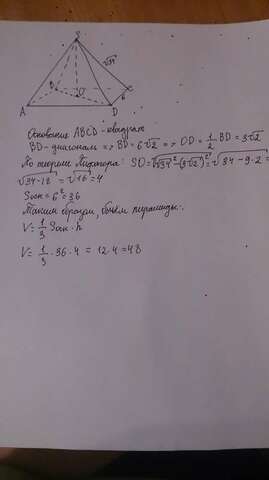 S
√34
B
C
O
6
A
D
Основание ABCD - квадрат
BD - диагональ => BD = 6√2 => OD = 1/2 BD = 3√2
По теореме Пифагора: SO = √(√34² - (3√2)²) = √(34 - 9·2) =
√(34-18) = √16 = 4
Sосн = 6² = 36
Таким образом, объём пирамиды:
V = 1/3 Sосн · h
V = 1/3 · 36 · 4 = 12 · 4 = 48